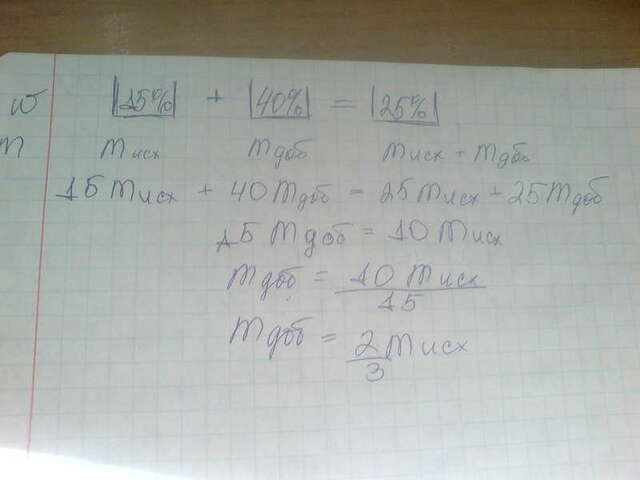 w 15% + 40% = 25%
m mисх mдоб mисх + mдоб
15 mисх + 40 mдоб = 25 mисх + 25 mдоб
15 mдоб = 10 mисх
mдоб = 10 mисх / 15
mдоб = 2/3 mисх